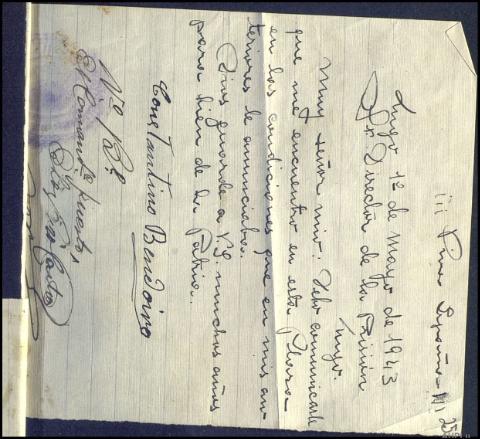 ¡¡¡ Arriba España!!! 25
Lugo 12 de Mayo de 1943
Sr. Director de la Prisión
Lugo.
Muy señor mio: Debo comunicarle
que me encuentro en esta Plaza
en las condiciones que en mis an-
teriores le anunciaba.
Dios guarde a V.S. muchos años
para bien de la Patria.
Constantino Bendoiro
Vº Bº
El Comandte puesto